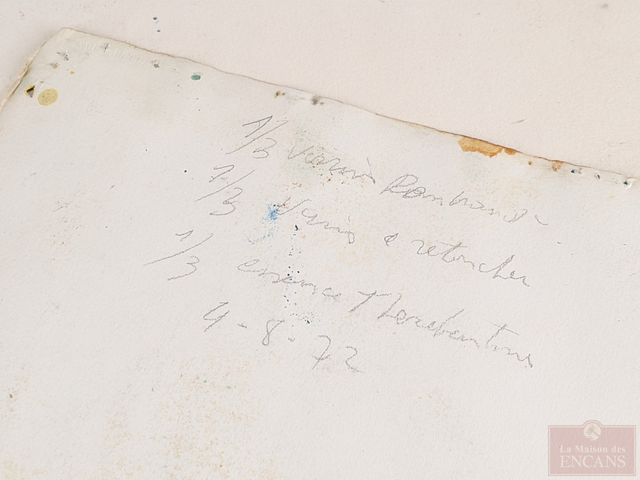 1/3 Vernis Rembrandt
1/3 Vernis a retoucher
1/3 essence Therebentine
4-8-72
La Maison des
ENCANS